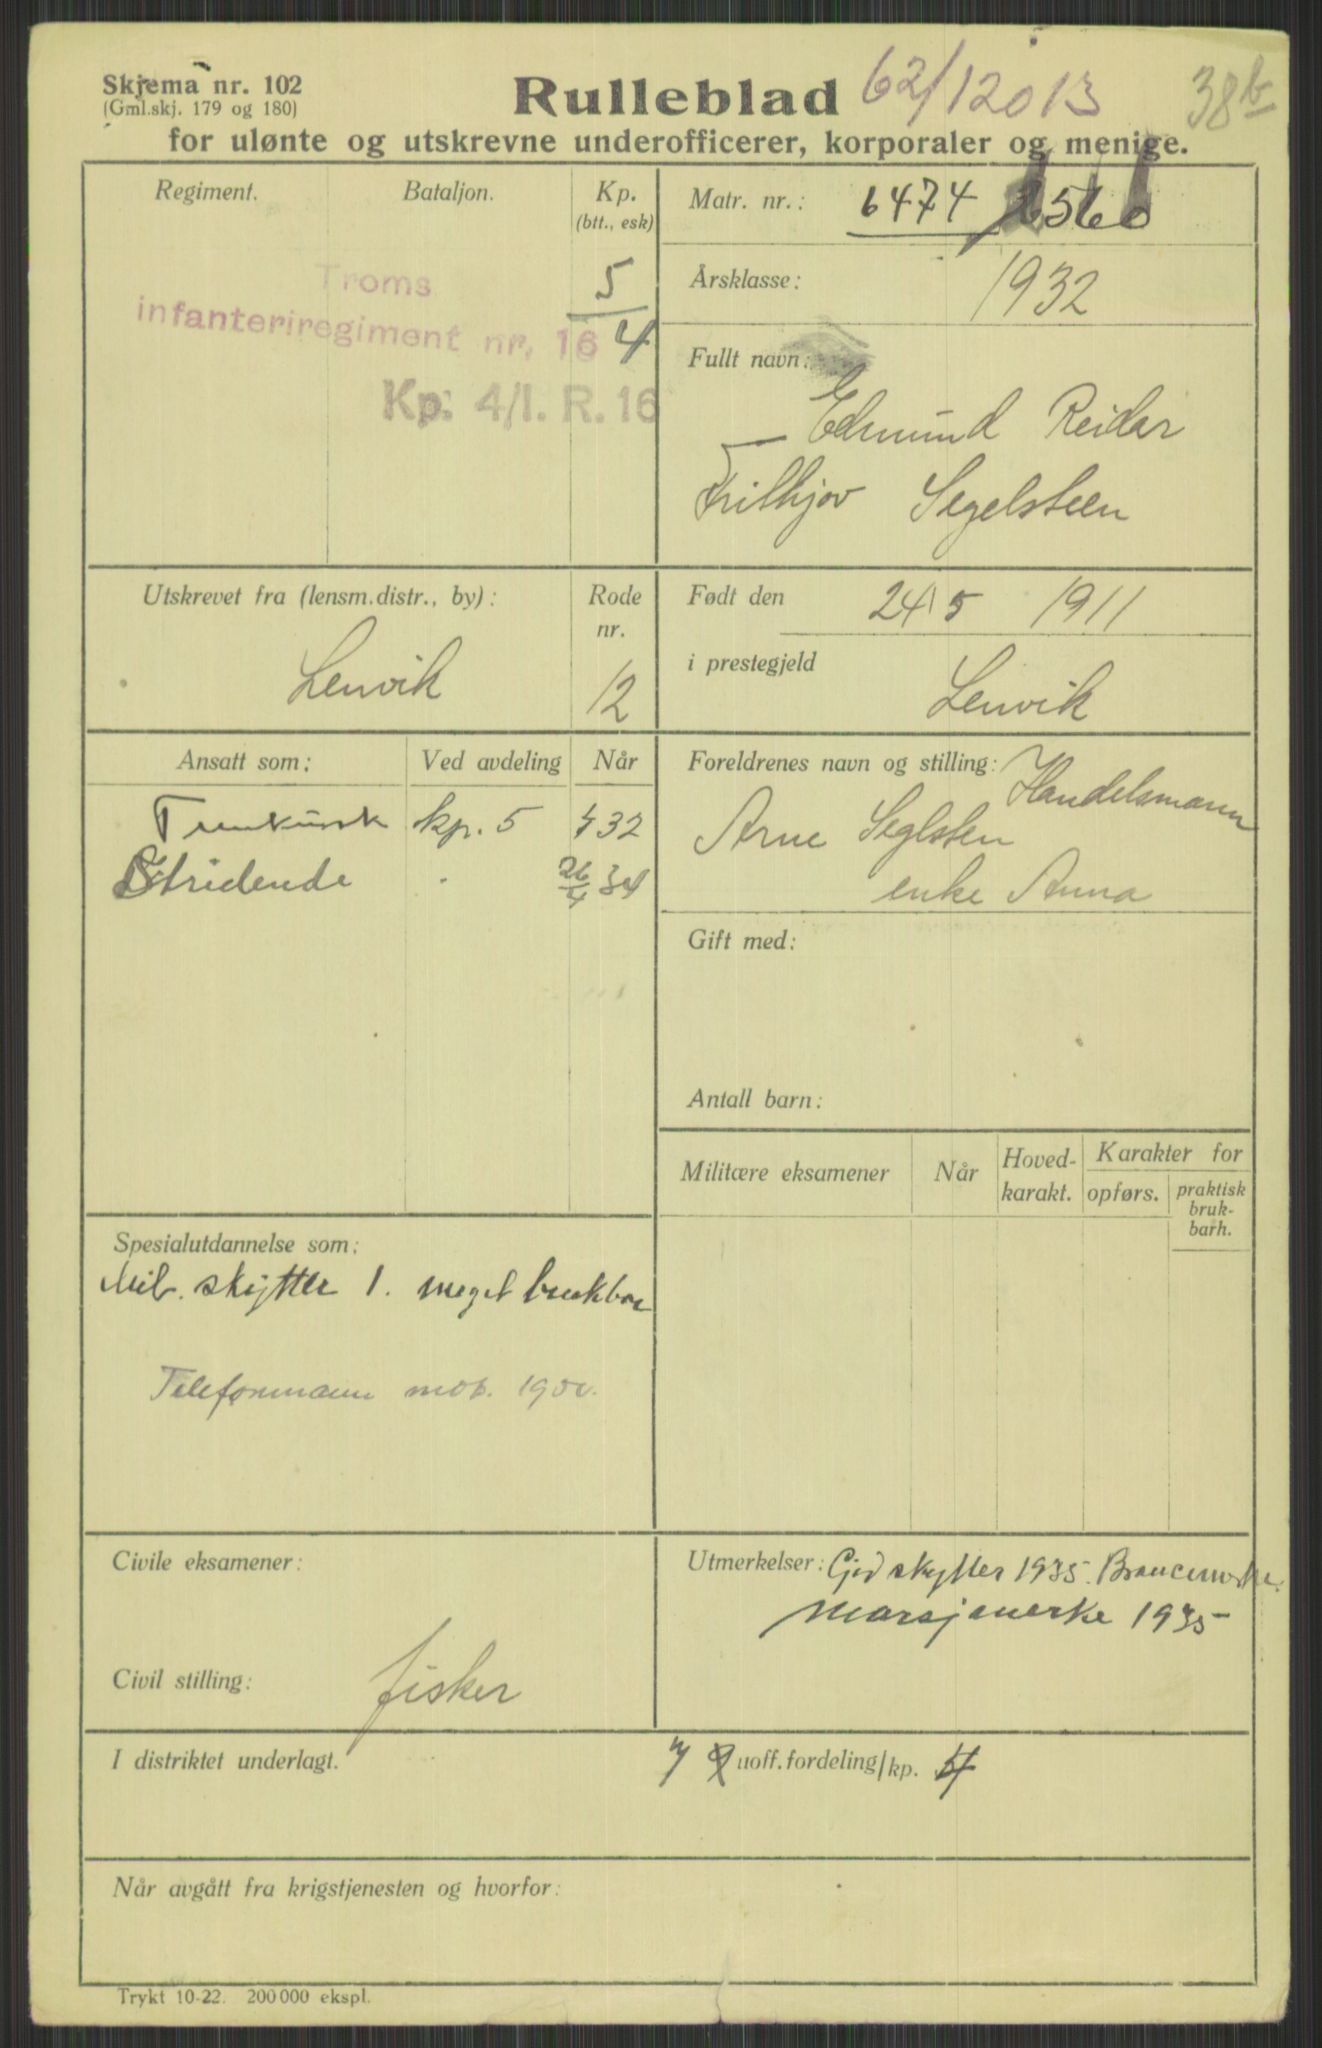 Skjema nr. 102
(Gml.skj. 179 og 180)
Rulleblad 62/12013 38b
for ulønte og utskrevne underofficerer, korporaler og menige.
Regiment. Bataljon. Kp.
(btt., esk)
Troms
infanteriregiment nr. 16
5
4
Kp: 4/I. R. 16
Matr. nr.: 6474 6560
Årsklasse: 1932
Fullt navn:
Edmund Reidar
Frithjov Segelsteen
Utskrevet fra (lensm.distr., by): Rode nr.
Lenvik 12
Født den 24/5 1911
i prestegjeld Lenvik
Ansatt som: Ved avdeling Når
kp. 5 32
Stridende 26/4 34
Foreldrenes navn og stilling: Handelsmann
Arne Seglsten
enke Anna
Gift med:
Antall barn:
Militære eksamener Når Hoved-karakt. Karakter for
opførs. praktisk bruk-barh.
Spesialutdannelse som:
Mil. skytter 1. meget brukbar
Telefonmann mob.
Civile eksamener:
Civil stilling: fisker
Utmerkelser: God skytter 1935.
Marsjmerke 1935
I distriktet underlagt. uoff.fordeling/kp. 4
Når avgått fra krigstjenesten og hvorfor:
Trykt 10-22. 200 000 ekspl.